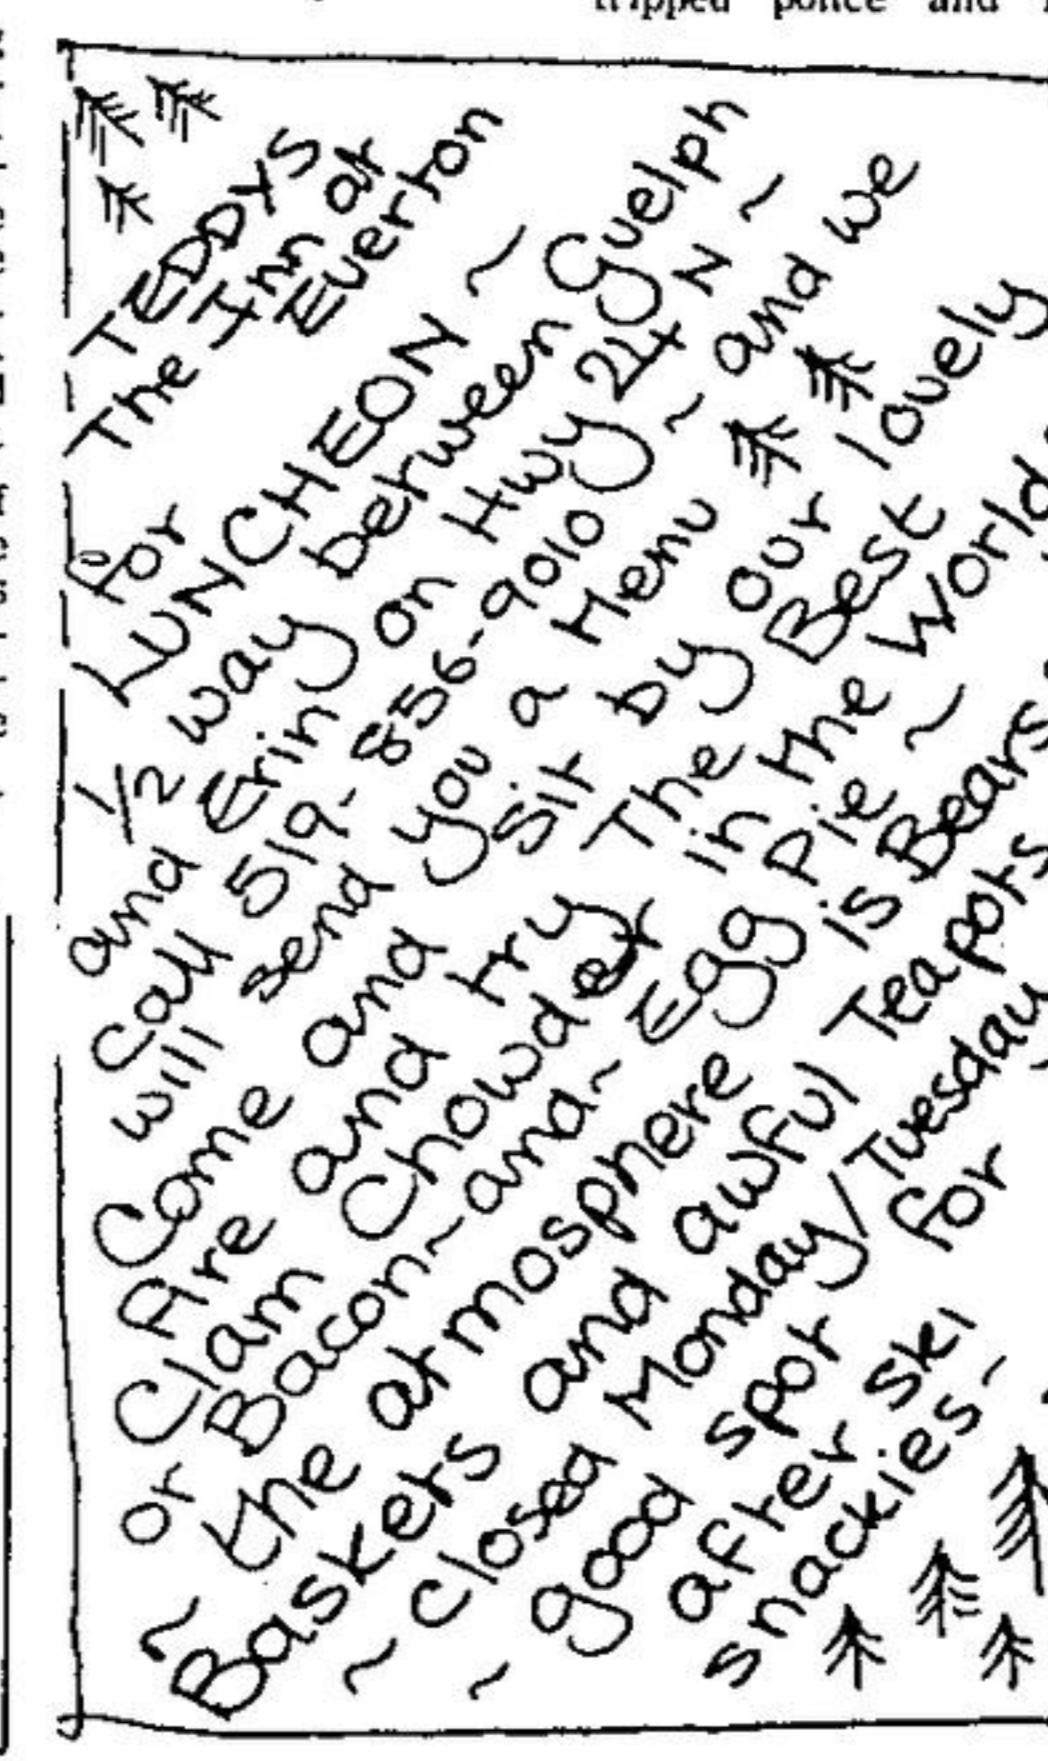 tripped police and
TEDDYS
The Inn at
Everton
for
LUNCHEON ~
1/2 way between Guelph
and Erin on Hwy 24 N ~
Call 519-856-9010 ~ and we
will send you a Menu
Come and sit by our lovely
Fire and try The Best
Clam Chowder in the World
or Bacon-and-Egg Pie ~
~ the atmosphere is Bears
Baskets and awful Teapots
~ closed Monday/Tuesday
~ good spot for
after ski
snackies -